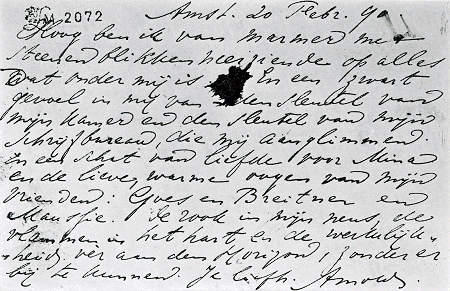 M 2072
Amst. 20 Febr. 90
Hoog ben ik van marmer met
steenen blikken neerziende op alles
Dat onder mij is. En een zwart
gevoel in mij van den sleutel van
mijn kamer en den sleutel van mijn
schrijfbureau, die mij aanglimmen.
En een schat van liefde voor Mina
en de lieve, warme oogen van mijn
vrienden: Goes en Breitner en
De rook in mijn neus, de
vlammen in het hart, en de werkelijk-
heid, ver aan den Horizond, zonder er
bij te kunnen. Je liefh. Arnold.